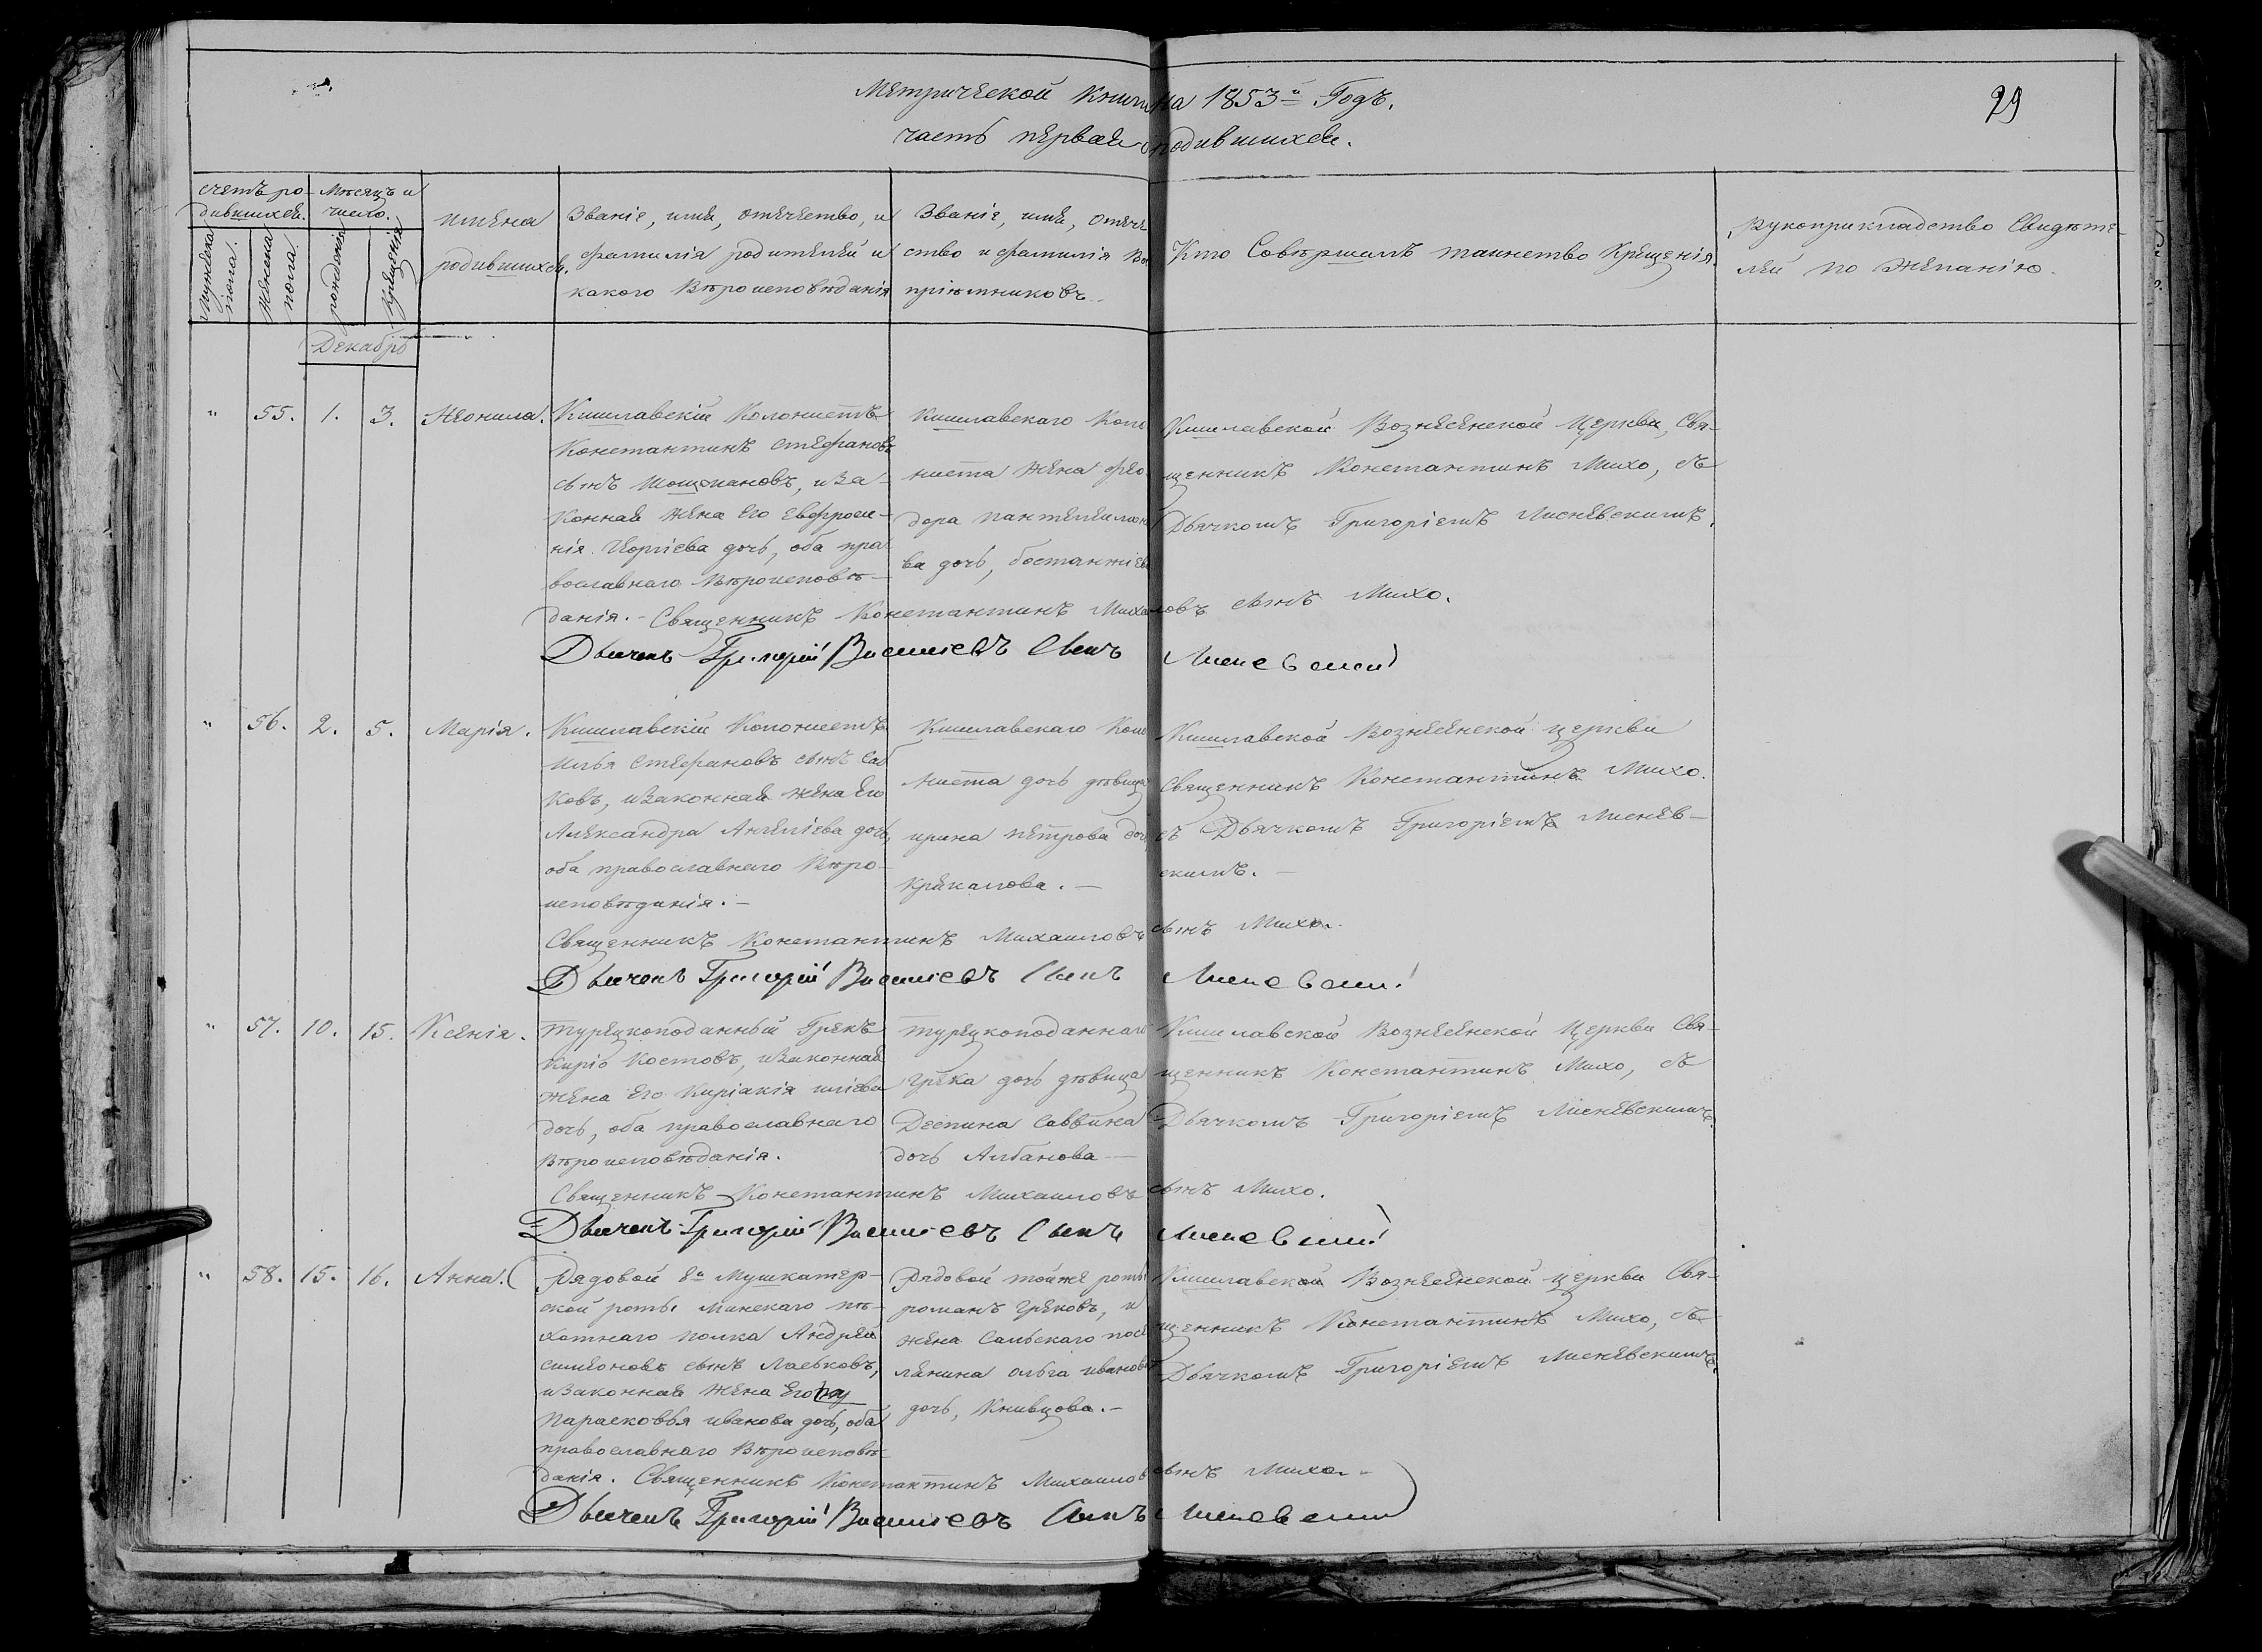 Метрической книги на 1853й Годъ.
29
часть первая о родившихся.
счетъ ро-
дившихся.
мужеска
пола.
женска
пола.
Мѣсяцъ и
число.
рожденія
крещенія
имена
родившихся.
Званіе, имя, отечество, и
фамилія родителей и
какого Вѣроисповѣданія
Званіе, имя, отече
ство и фамилія Во
пріемниковъ.
Кто Совершалъ таинство Крещенія.
Рукоприкладство Свидѣте-
лей по Желанію.
Декабрь
" 55. 1. 3. Неонила.
Кишлавскій Колонистъ
Константинъ Стефановъ
сынъ, и за-
конная жена его Евфроси-
нія Георгіева дочь, оба пра
вославнаго Вѣроисповѣ-
Кишлавскаго Коло
ниста жена Фео
дора Пантелеимоно
ва дочь, Бостанжіева
Кишлавской Вознесенской Церкви, Свя-
щенникъ Константинъ Михо, съ
Дьячкомъ Григоріемъ Лисневскимъ.
данія. - Священникъ Константинъ Михаиловъ сынъ Михо.
Дьячекъ Григорій Василіевъ Сынъ Лисневскій
" 56. 2. 5. Марія.
Кишлавскій Колонистъ
Илья Стефановъ сынъ Сав
ковъ, и законная жена его
Александра Ангеліева дочь,
оба православнаго Вѣро-
исповѣданія. —
Кишлавскаго Коло
ниста дочь дѣвица
Ирина Петрова дочь
Крекалова. —
Кишлавской Вознесенской церкви
Священникъ Константинъ Михо.
съ Дьячкомъ Григоріемъ Лиснев-
скимъ. —
Священникъ Константинъ Михаиловъ сынъ Михо.
Дьячекъ Григорій Василіевъ Сынъ Лисневскій
" 57. 10. 15. Ксенія.
Турецкоподанный Грекъ
Киріо Костовъ, и законная
жена его Киріакія Иліева
дочь, оба православнаго
Вѣроисповѣданія.
Турецкоподаннаго
Грека дочь дѣвица
Деспина Саввина
дочь Албанова —
Кишлавской Вознесенской Церкви Свя-
щенникъ Константинъ Михо, съ
Дьячкомъ Григоріемъ Лисневскимъ.
Священникъ Константинъ Михаиловъ сынъ Михо.
Дьячекъ Григорій Василіевъ Сынъ Лисневскій
" 58. 15. 16. Анна.
Рядовой 8й Мушкатер-
ской роты Минскаго пѣ-
хотнаго полка Андрей
Симеоновъ сынъ Ласьковъ,
и законная жена его
Парасковья Иванова дочь, оба
православнаго Вѣроисповѣ-
Рядовой тойже роты
Романъ Грековъ, и
жена Сальскаго посе
лянина Ольга Иванова
дочь, Книвцова. —
Кишлавской Вознесенской церкви Свя-
щенникъ Константинъ Михо, съ
Дьячкомъ Григоріемъ Лисневскимъ.
данія. Священникъ Константинъ Михаиловъ сынъ Михо. -
Дьячекъ Григорій Василіевъ Сынъ Лисневскій